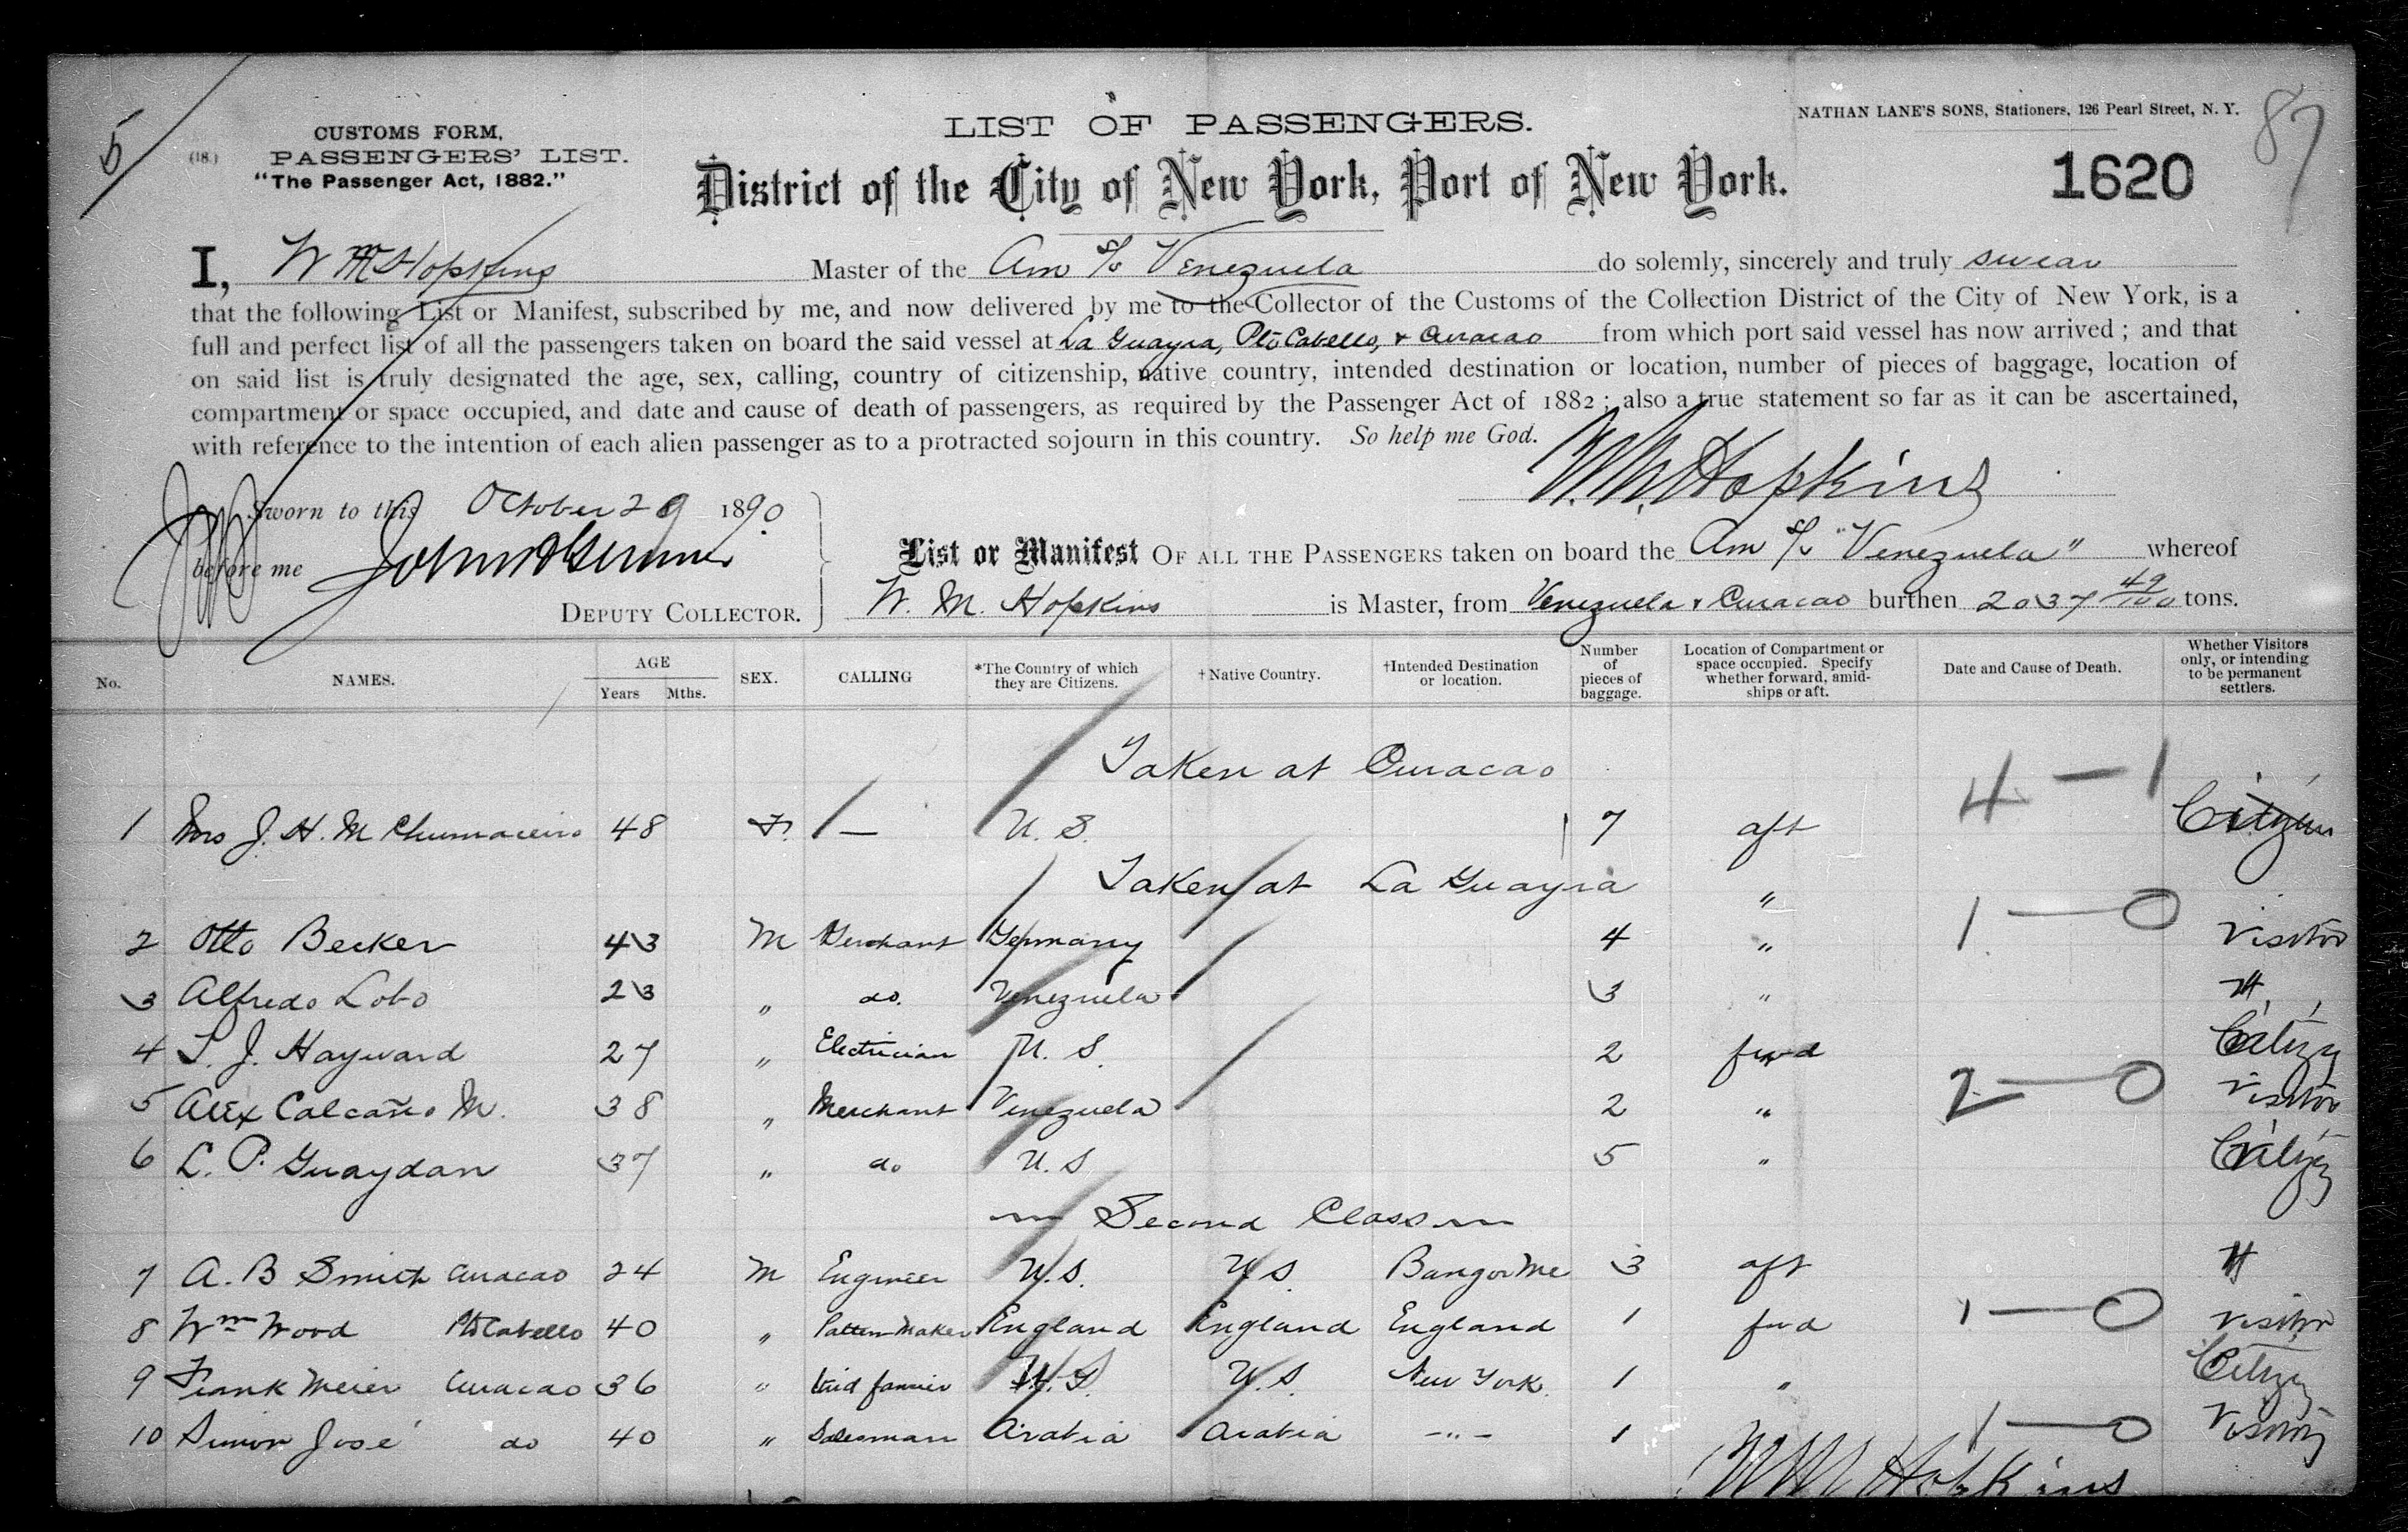 5
(18.)
CUSTOMS FORM,
PASSENGERS' LIST.
"The Passenger Act, 1882."
LIST OF PASSENGERS.
District of the City of New York, Port of New York.
NATHAN LANE'S SONS, Stationers, 126 Pearl Street, N. Y.
87
1620
I, W M Hopkins Master of the Am S/S Venezuela do solemly, sincerely and truly swear
that the following List or Manifest, subscribed by me, and now delivered by me to the Collector of the Customs of the Collection District of the City of New York, is a
full and perfect list of all the passengers taken on board the said vessel at La Guayra, Pto Cabello, & Curacao from which port said vessel has now arrived ; and that
on said list is truly designated the age, sex, calling, country of citizenship, native country, intended destination or location, number of pieces of baggage, location of
compartment or space occupied, and date and cause of death of passengers, as required by the Passenger Act of 1882 ; also a true statement so far as it can be ascertained,
with reference to the intention of each alien passenger as to a protracted sojourn in this country. So help me God.
W. M. Hopkins
Sworn to this October 29 1890
before me
DEPUTY COLLECTOR.
List or Manifest OF ALL THE PASSENGERS taken on board the Am S/S "Venezuela" whereof
W. M. Hopkins is Master, from Venezuela & Curacao burthen 2037 49/100 tons.
No. NAMES. AGE Years Mths. SEX. CALLING *The Country of which they are Citizens. †Native Country. †Intended Destination or location. Number of pieces of baggage. Location of Compartment or space occupied. Specify whether forward, amidships or aft. Date and Cause of Death. Whether Visitors only, or intending to be permanent settlers.
Taken at Curacao
4 — 1
1 Mrs J. H. M Chumaceiro 48 F. — U. S. 7 aft Citizen
Taken at La Guayra "
2 Otto Becker 43 M Merchant Germany 4 " 1 — 0 Visitor
3 Alfredo Lobo 23 " do. Venezuela 3 " "
4 T. J. Hayward 27 " Electrician U. S. 2 fwd Citizen
5 Alex Calcaño M. 38 " Merchant Venezuela 2 " 2 — 0 Visitor
6 L. P. Guaydan 37 " do U. S 5 " Citizen
Second Class
7 A. B Smith Curacao 24 M Engineer U.S. U S Bangor Me 3 aft "
8 Wm Wood Pto Cabello 40 " Pattern Maker England England England 1 fwd 1 — 0 Visitor
9 Frank Meier Curacao 36 " U.S. U.S. New York. 1 " Citizen
10 Simon José do 40 " Salesman Arabia Arabia — " — 1 1 — 0 Visitor
W M Hopkins